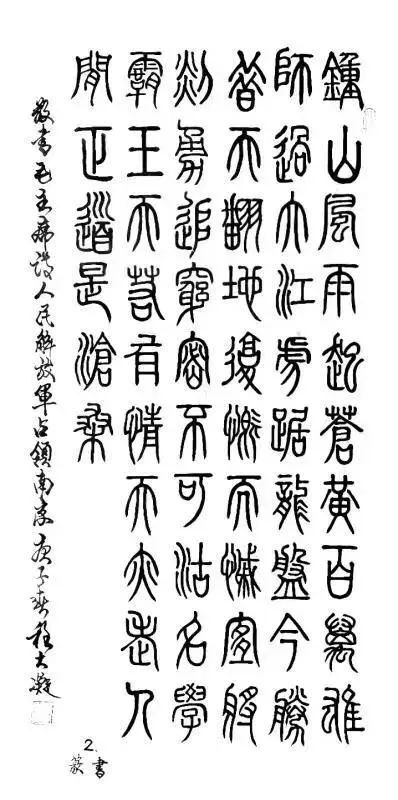 鍾山風雨起蒼黃百萬雄
師過大江虎踞龍盤今勝
昔天翻地覆慨而慷宜將
剩勇追窮寇不可沽名學
霸王天若有情天亦老人
閒正道是滄桑
敬書毛主席詩人民解放軍占領南京庚子春程大凝
2.
篆書